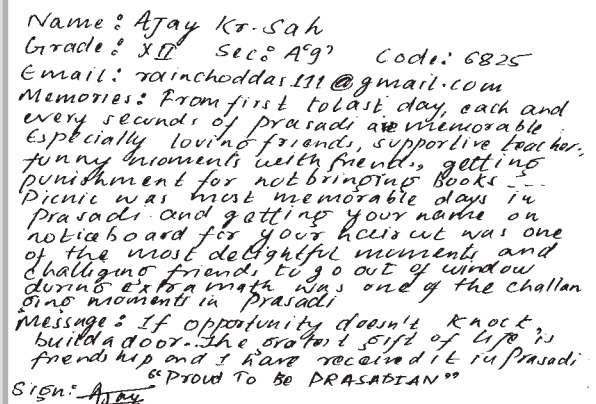 Name: Ajay Kr. Sah
Grade: XII Sec: A'g' Code: 6825
Email: rainchoddas111@gmail.com
Memories: From first to last day, each and
every seconds of prasadi are memorable.
Especially loving friends, supportive teacher,
funny moments with friends, getting
punishment for not bringing Books ---
Picnic was most memorable days in
Prasadi and getting your name on
notice board for your haircut was one
of the most delightful moments and
challiging friends to go out of window
during extra math was one of the challan
ging moments in Prasadi
Message: If opportunity doesn't knock,
build a door. The gratest gift of life is
friendship and I have received it in Prasadi
"PROUD TO BE PRASADIAN"
Sign: Ajay